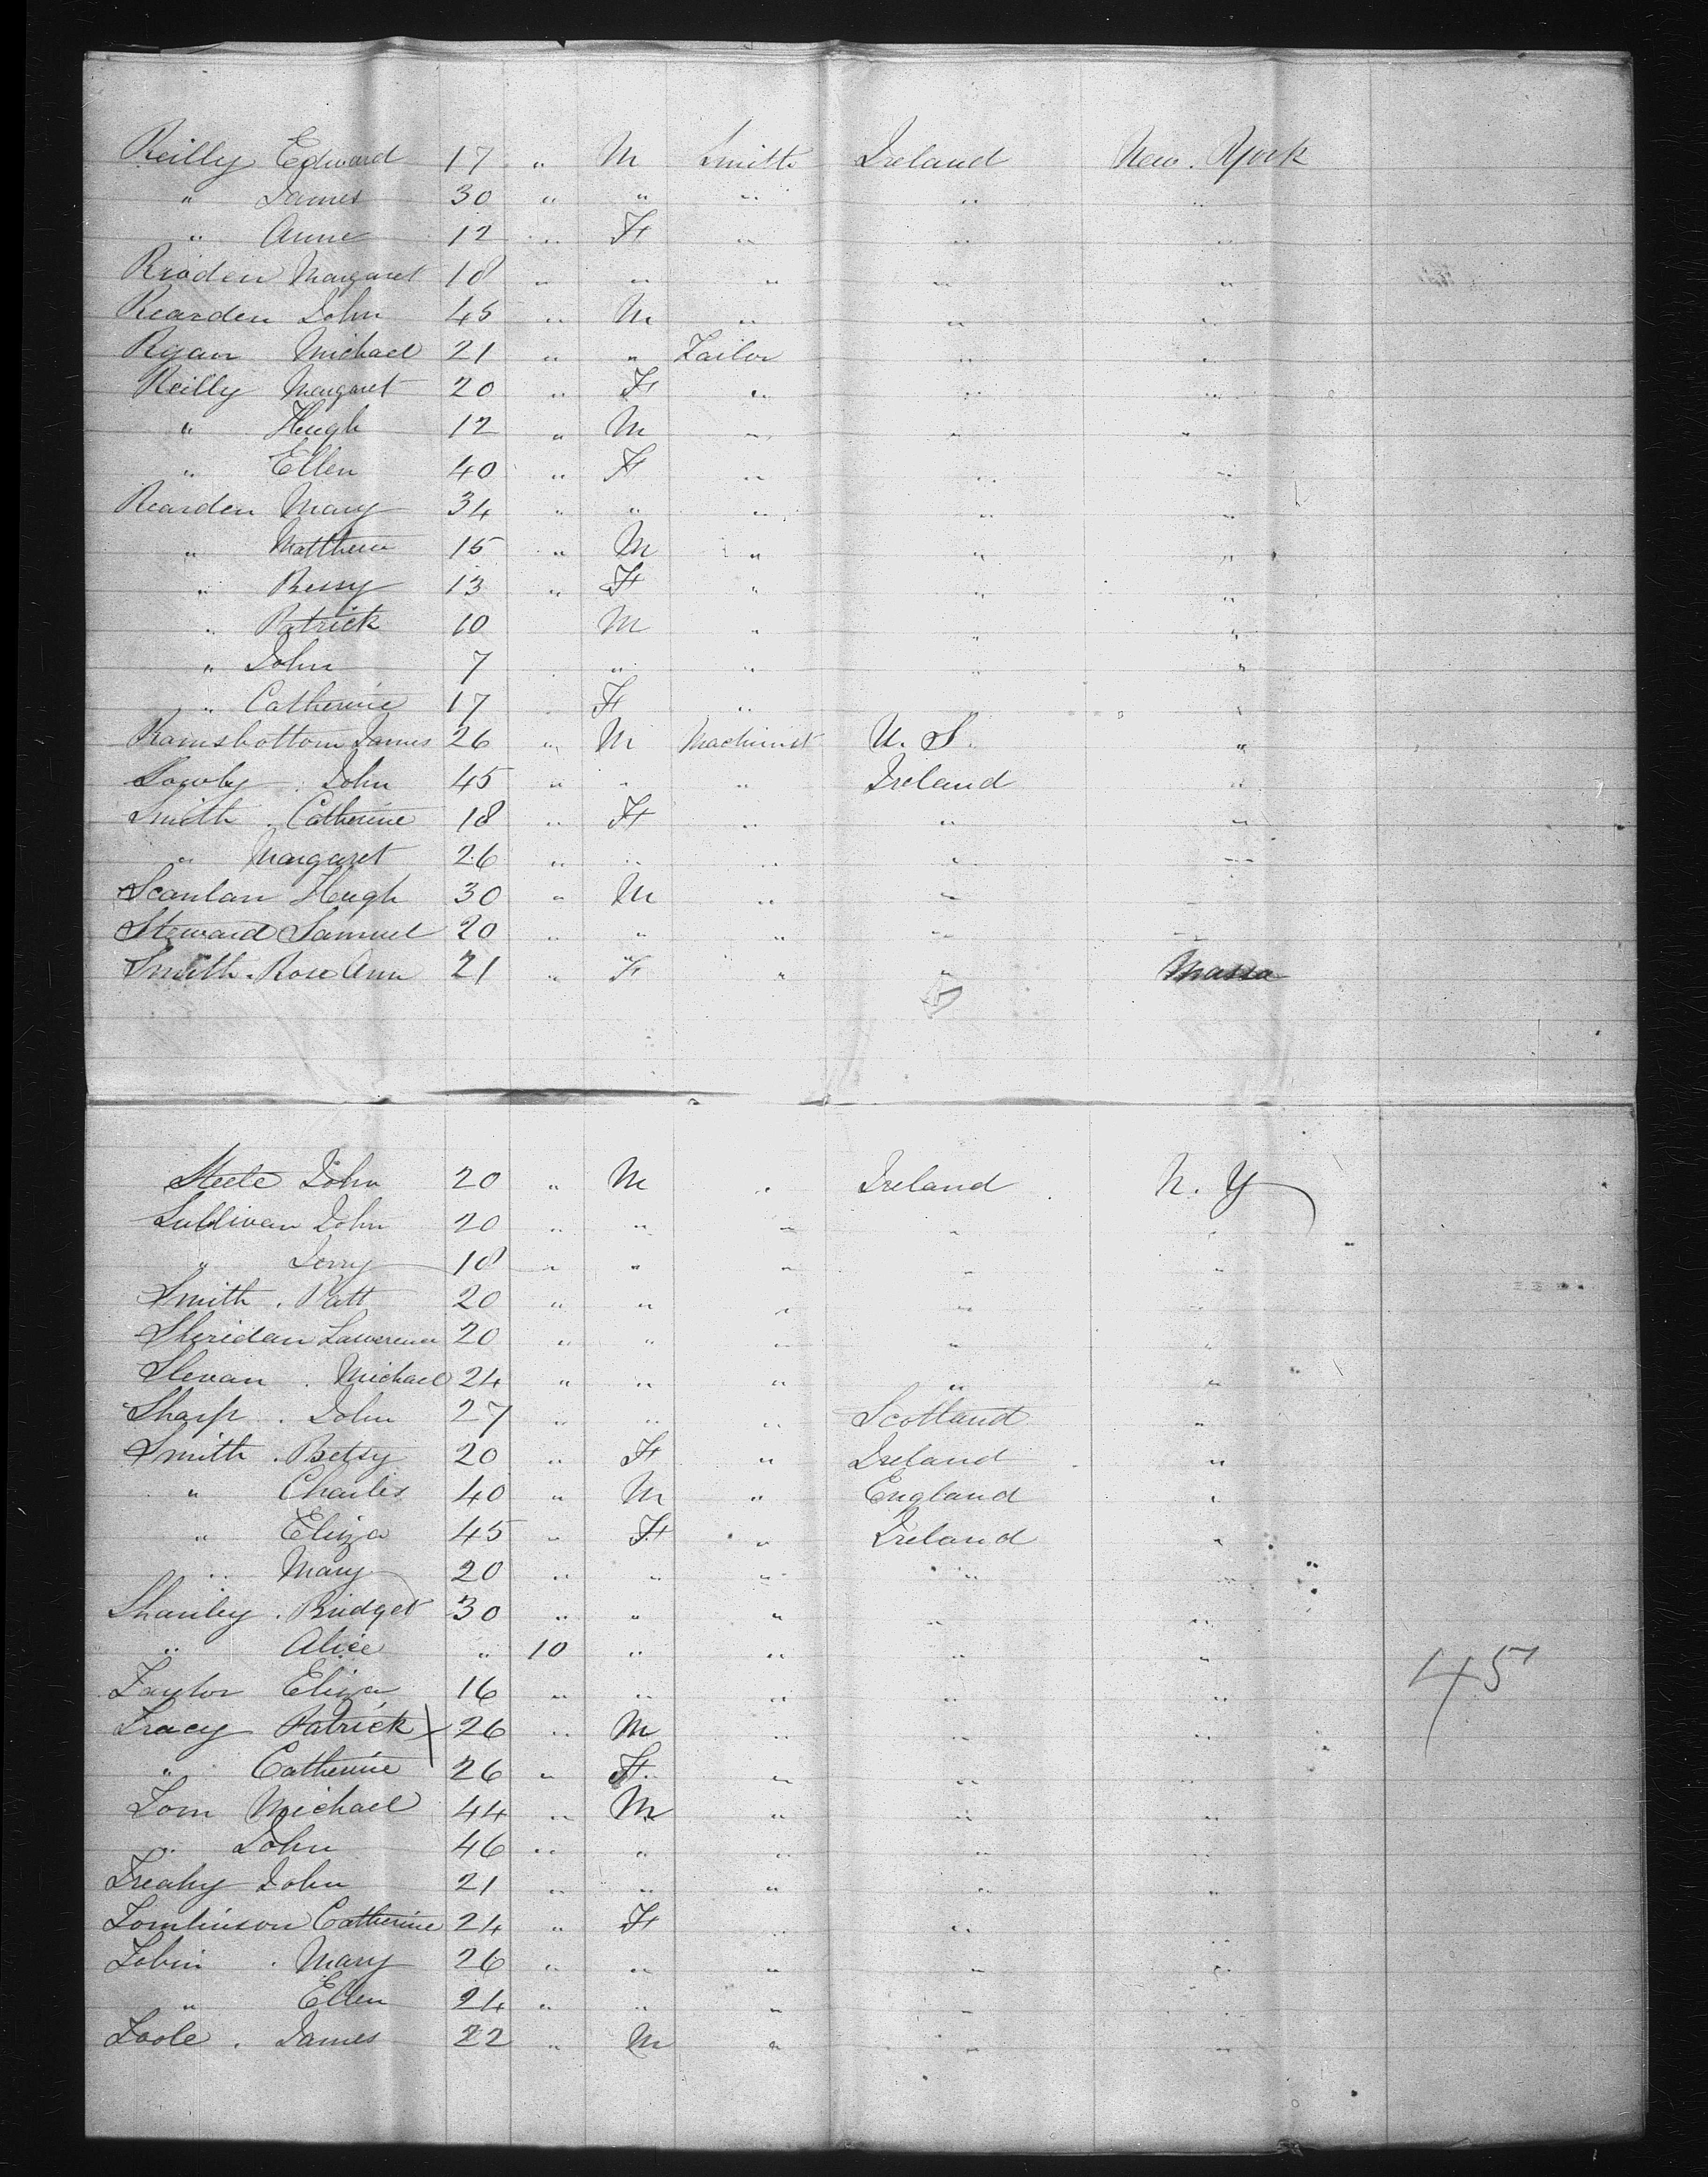 Reilly Edward 17 " M Smith Ireland New York
" James 30 " " " " "
" Anne 12 " F " " "
Rioden Margaret 18 " " " " "
Rearden John 45 " M " " "
Ryan Michael 21 " " Tailor " "
Reilly Margaret 20 " F " " "
" Hugh 12 " M " " "
" Ellen 40 " F " " "
Rearden Mary 34 " " " " "
" Matthew 15 " M " " "
" Bessy 13 " F " " "
" Patrick 10 M " " "
" John 7 " " " "
" Catherine 17 F " "
Ramsbottom James 26 " M Machinist U. S. "
Sowby John 45 " " " Ireland "
Smith Catherine 18 " F " " "
" Margaret 26 " " " " "
Scanlan Hugh 30 " M " " "
Steward Samuel 20 " " " " "
Smith Rose Ann 21 " F " " Massa
Steele John 20 " M " Ireland N. Y
Sullivan John 20 " " " " "
" Jerry 18 " " " " "
Smith Patt 20 " " " " "
Sheridan Lawrence 20 " " " " "
Slevan Michael 24 " " " " "
Sharp John 27 " " " Scotland "
Smith Betsy 20 " F " Ireland "
" Charles 40 " M " England "
" Eliza 45 " F " Ireland "
" Mary 20 " " " " "
Shanley Bridget 30 " " " " "
" Alice " 10 " " " "
Taylor Eliza 16 " " " " " 45
Tracy Patrick 26 " M " " "
" Catherine 26 " F " " "
Tom Michael 44 " M " " "
" John 46 " " " " "
Treahy John 21 " " " " "
Tomlinson Catherine 24 " F " " "
Tobin Mary 26 " " " " "
" Ellen 24 " " " " "
Toole James 22 " M " " "